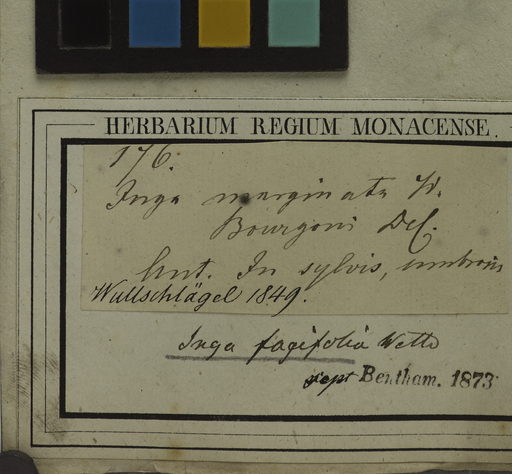 HERBARIUM REGIUM MONACENSE.
176.
Inga marginata W.
Bourgoni DC.
Ant. In sylvis, umbrosis
Wullschlägel 1849.
Inga fagifolia Willd
Bentham. 1873